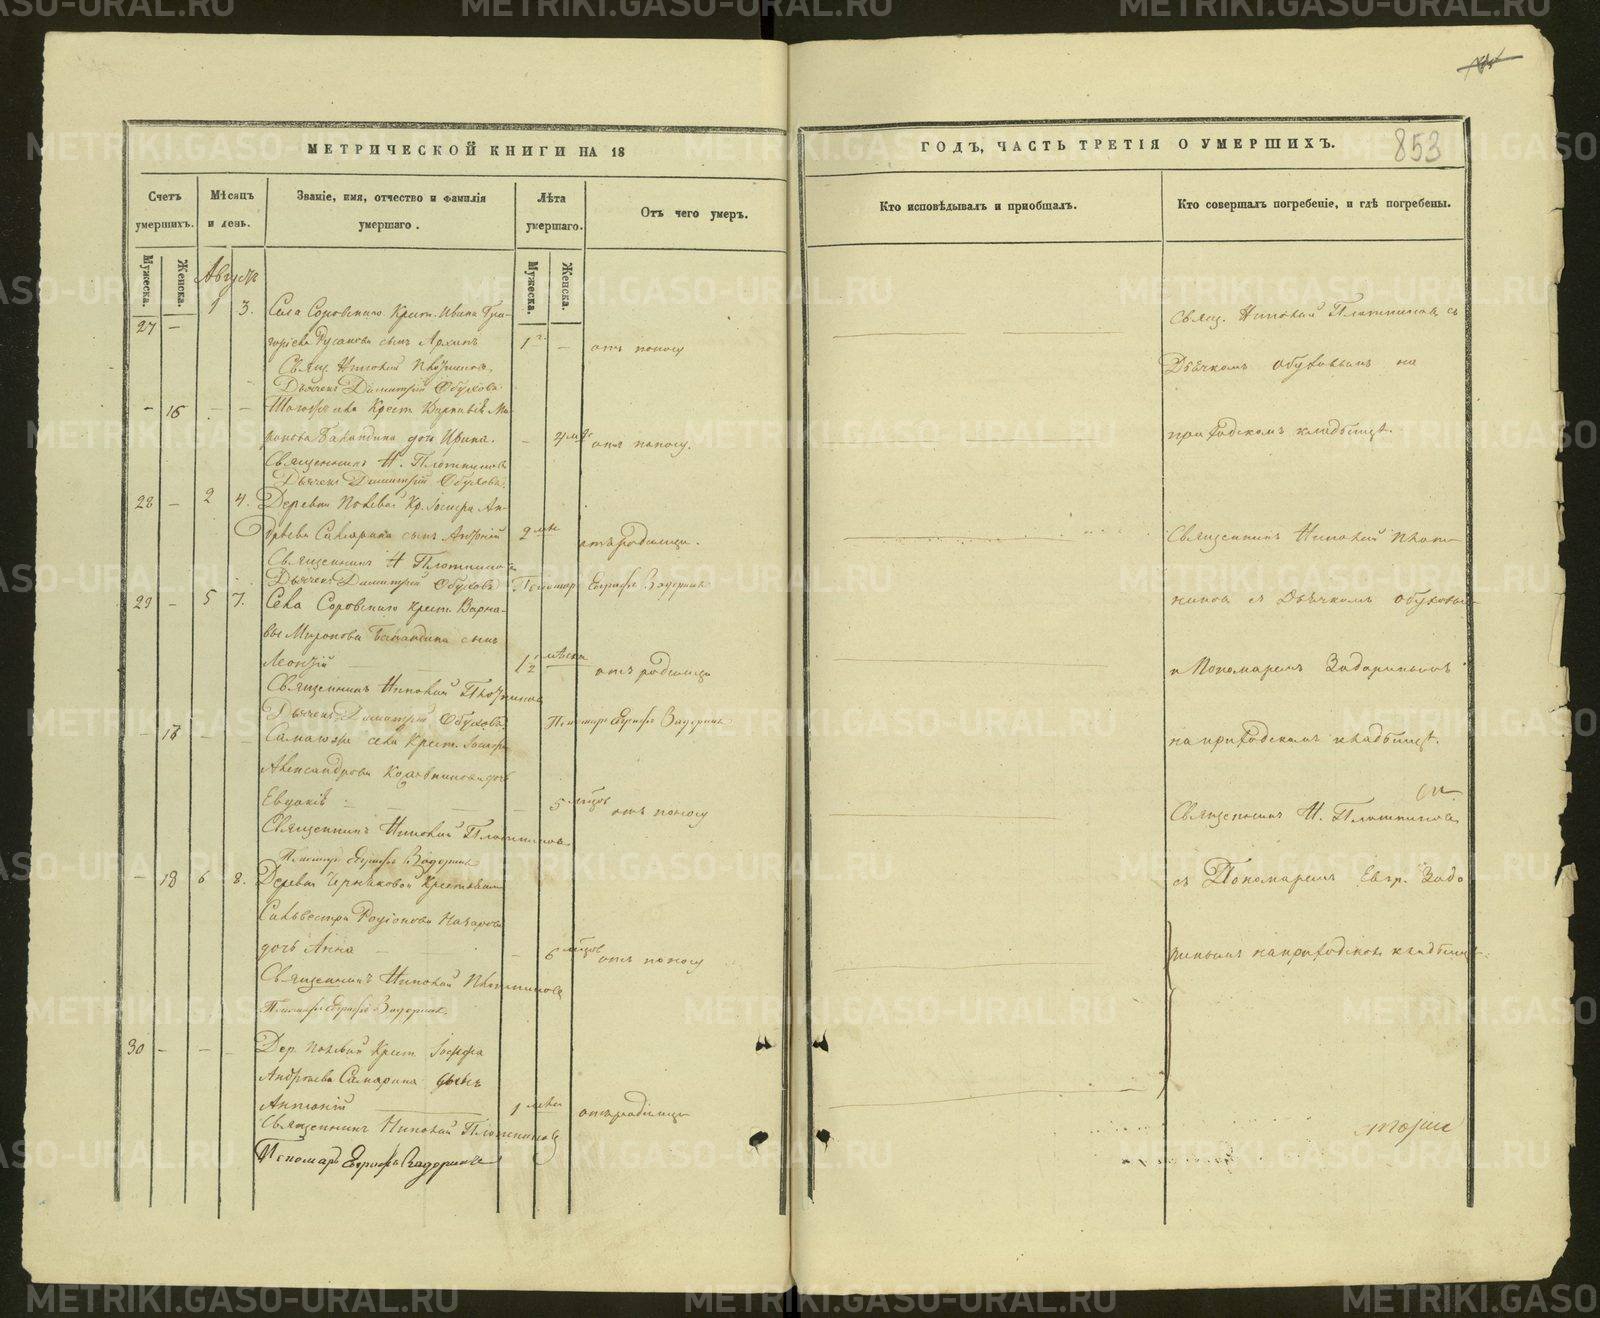 МЕТРИЧЕСКОЙ КНИГИ НА 18
Счетъ умершихъ.
Мѣсяцъ и день.
Званіе, имя, отчество и фамилія умершаго.
Лѣта умершаго.
Отъ чего умеръ.
Мужеска.
Женска.
Мужеска.
Женска.
Августъ
1 3. Села Соровскаго Крест. Ивана Гри-
27 —
горьева Русанова сынъ Архипъ 1 г. — отъ поносу
Свящ. Николай Плотниковъ
Дьячекъ Димитрій Обуховъ
— 16 — — Тогожъ села Крест. Варнавы Ми-
ронова Баландина дочь Ирина. —
отъ поносу.
Священникъ Н. Плотниковъ
Дьячекъ Димитрій Обуховъ.
28 — 2 4. Деревни Полевой Кр. Іосифа Ан-
дреева Самарина сынъ Антоній 2 отъ родимца.
Священникъ Н Плотниковъ
Дьячекъ Димитрій Обуховъ. Пономарь Евграфъ Задоринъ
29 — 5 7. Села Соровскаго Крест. Варна-
вы Миронова Баландина сынъ
Леонтій — — 1 1/2 мѣсяца отъ родимца
Священникъ Николай Плотниковъ
Дьячекъ Димитрій Обуховъ. Пономарь Евграфъ Задоринъ
— — — села Крест. Іосифа
Александрова дочь
Евдокія — — — 5 мѣсяцовъ отъ поносу
Священникъ Николай Плотниковъ
Пономарь Евграфъ Задоринъ
— 18 6 8. Деревни Крестьянина
Сильвестра Родіонова Назарова
дочь Анна — — 6 мѣсяцовъ отъ поносу
Священникъ Николай Плотниковъ
Пономарь Евграфъ Задоринъ.
30 — — — Дер. Полевой Крест. Іосифа
Андреева Самарина сынъ
Антоній — 1 отъ родимца
Священникъ Николай Плотниковъ
Пономарь Евграфъ Задоринъ
ГОДЪ, ЧАСТЬ ТРЕТІЯ О УМЕРШИХЪ.
853
Кто исповѣдывалъ и пріобщалъ.
Кто совершалъ погребеніе, и гдѣ погребены.
Свящ. Николай Плотниковъ съ
Дьячкомъ Обуховымъ на
приходскомъ кладбищѣ.
Священникъ Николай Плот-
никовъ съ Дьячкомъ Обуховымъ
и Пономаремъ Задоринымъ
на приходскомъ кладбищѣ.
Священникъ Н. Плотниковъ
съ Пономаремъ Евгр. Задо
ринымъ на приходскомъ кладбищѣ.
тоже
METRIKI.GASO-URAL.RU